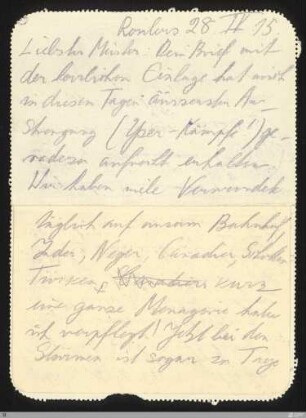 Roulers 28 IV 15
Liebster Meister: Dein Brief mit
der herrlichen Einlage hat mich
in diesen Tagen äussersten An-
strengung (Yser-Kämpfe!) ge-
radezu aufrecht erhalten.
Wir haben viele Verwundete
täglich auf unserem Bahnhof
Inder, Neger, Canadier, Schotten
Türken, kurz
eine ganze Menagerie habe
ich verpflegt! Jetzt bei den
Stürmen ist sogar zu Tage